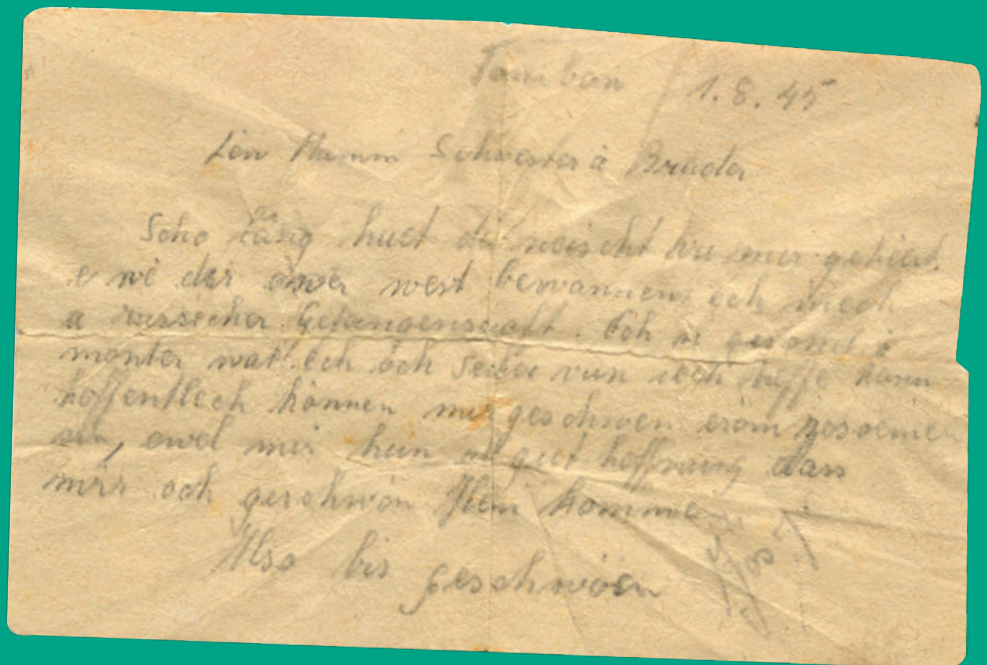 Tambon 1.8.45
Mamm Schwester à Brieder
Scho läng huet dir neischt vu mir gehéiert.
e wé dir ower west bewannen ech mech
a russecher Gefangenschaft. Ech
monter wat ech och vun iech hoffe kann
hoffentlech können mir geschwen erom zosomen
sin, mir hun gud hoffnung dass
mir och geschwön Hém komme
Also bis geschwöen
Jos. T